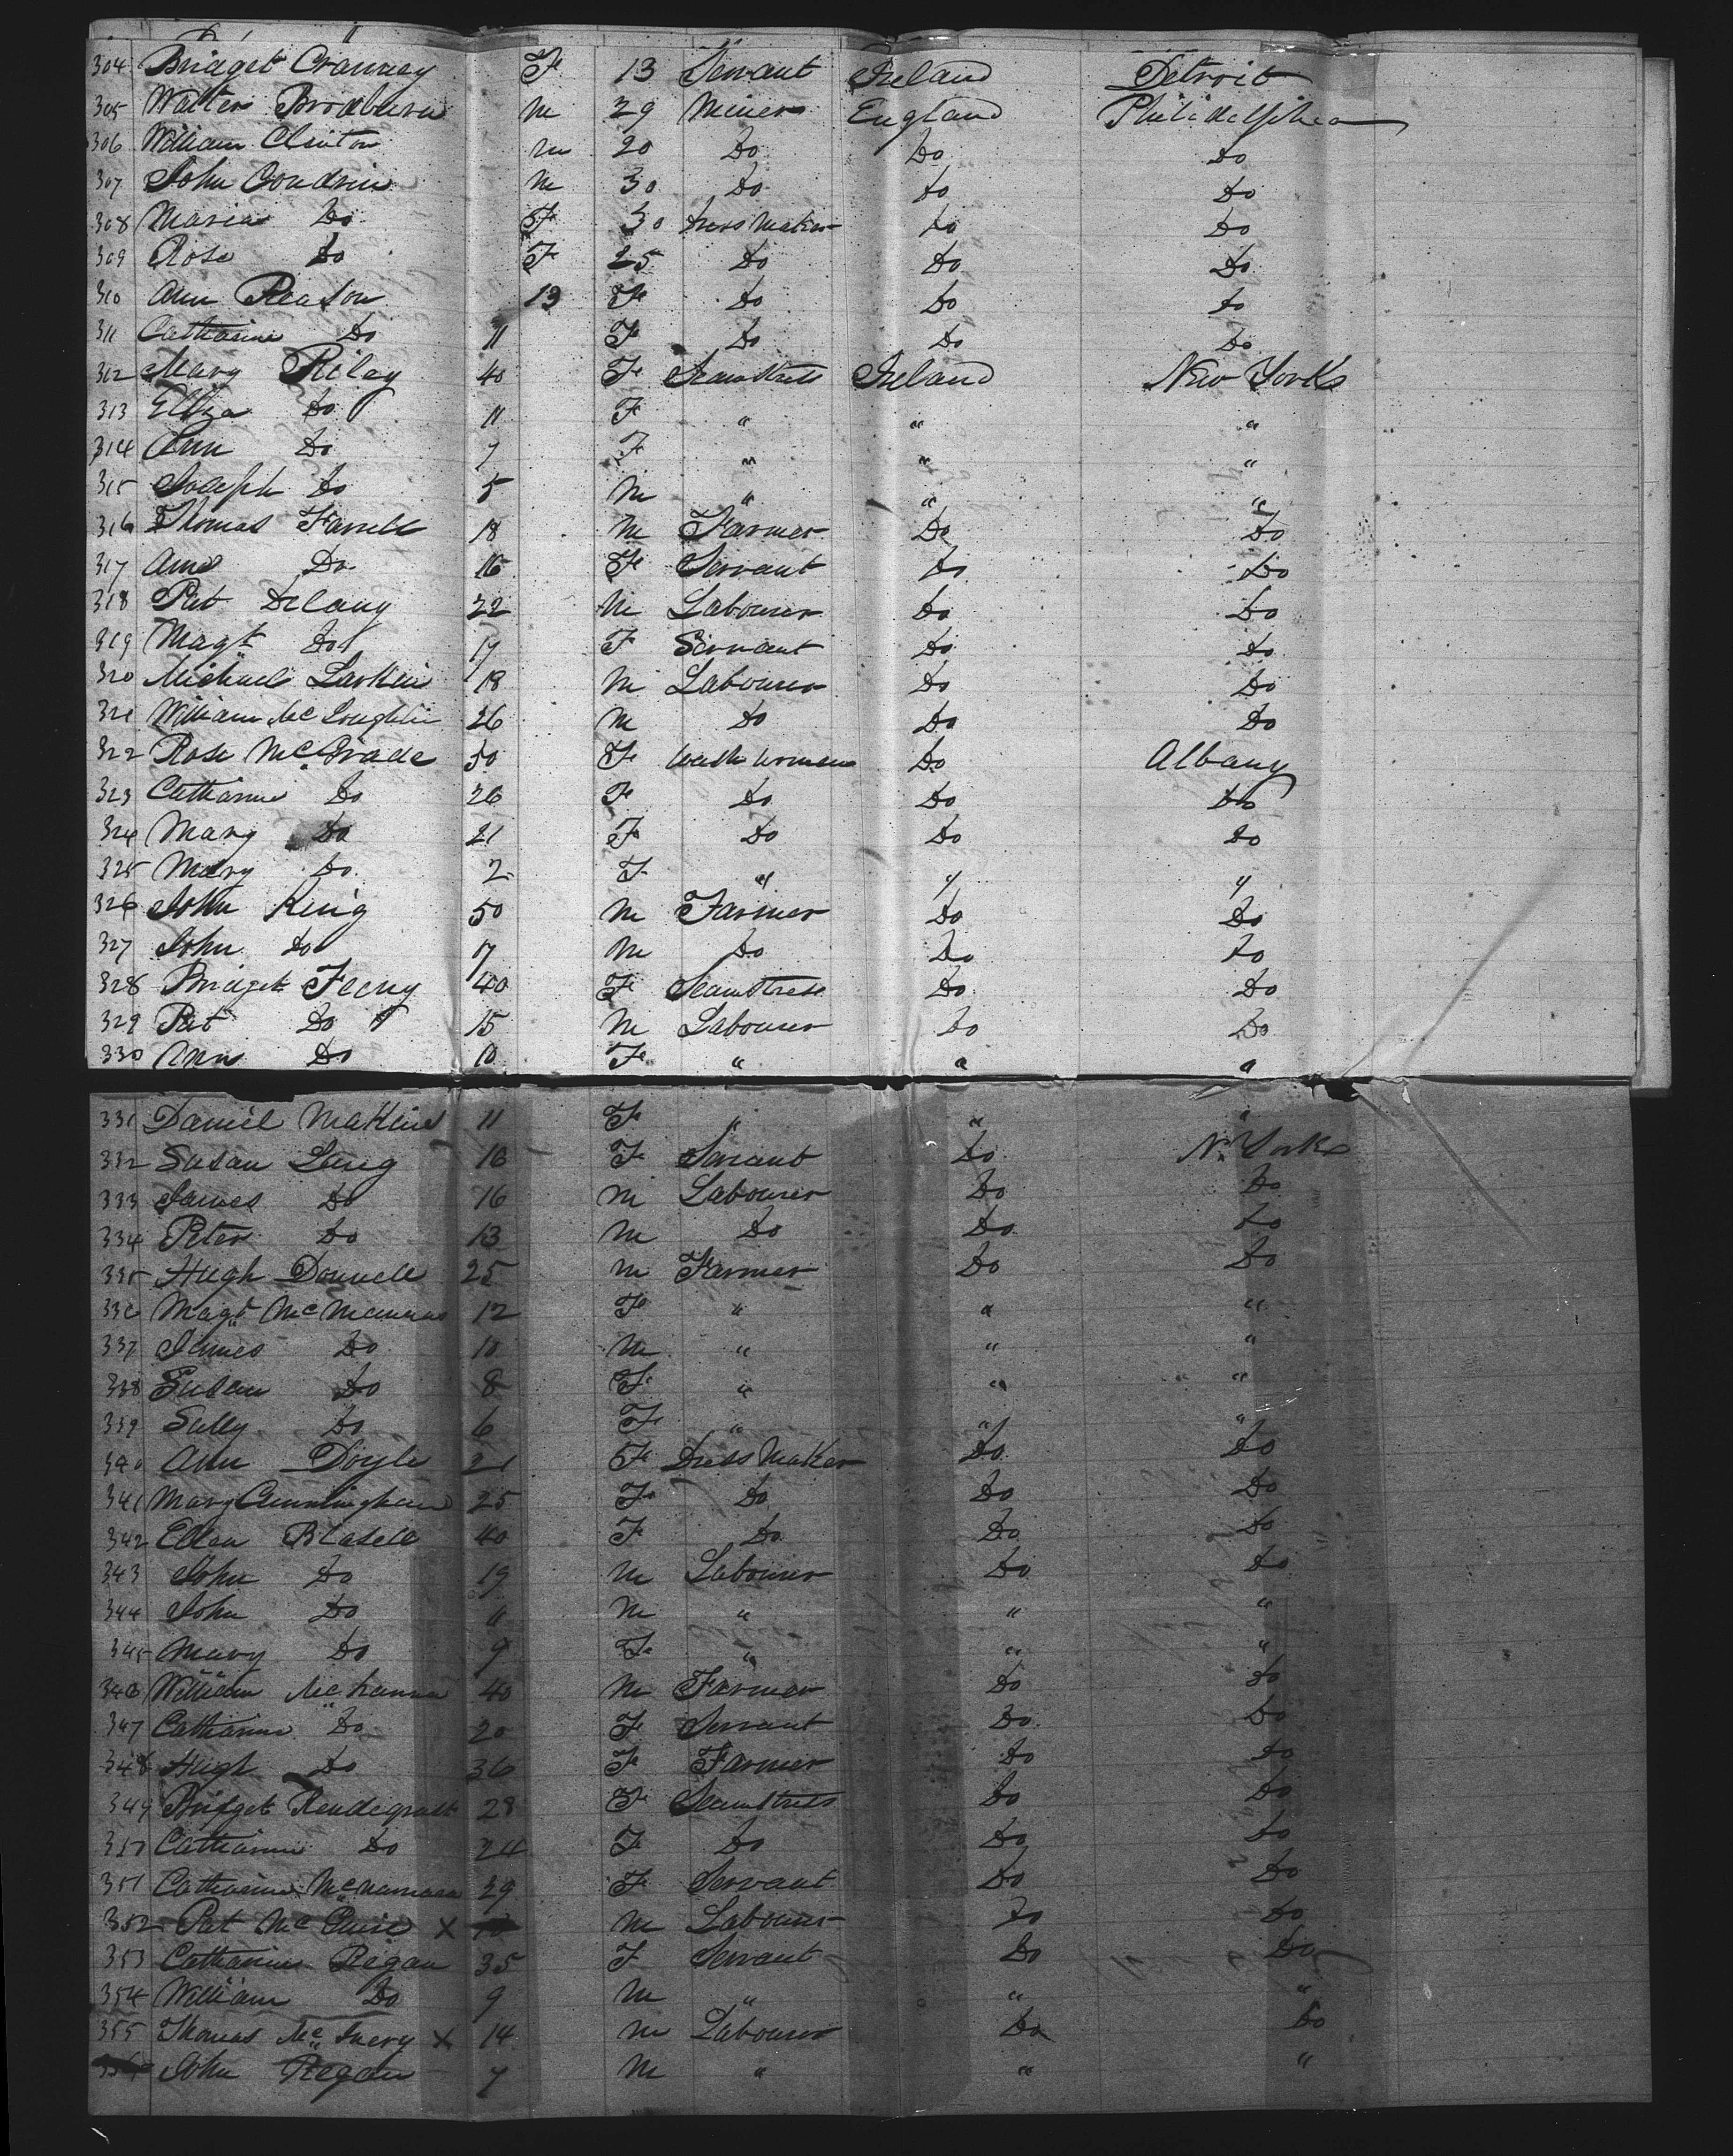 304 Bridget Cranney F 13 Servant Ireland Detroit
305 Walter Bradburn M 29 Miner England Philidelphia
306 William Clinton M 20 Do Do Do
307 John M 30 Do Do Do
308 Maria Do F 30 Dress Maker Do Do
309 Rose Do F 25 Do Do Do
310 Ann 13 F Do Do Do
311 Catharine Do 11 F Do Do Do
312 Mary Riley 40 F Seamstress Ireland New York
313 Eliza Do 11 F " " "
314 Ann Do 7 F " " "
315 Joseph Do 5 M " " "
316 Thomas Farrell 18 M Farmer Do Do
317 Ann Do 16 F Servant Do Do
318 Pat Delany 22 M Labourer Do Do
319 Magt Do 17 F Servant Do Do
320 Michael Larkin 18 M Labourer Do Do
321 William McLoughlin 26 M Do Do Do
322 Rose McGrade 50 F Wash Woman Do Albany
323 Catharine Do 26 F Do Do Do
324 Mary Do 21 F Do Do Do
325 Mary Do 2 F " " "
326 John King 50 M Farmer Do Do
327 John Do 17 M Do Do Do
328 Bridget Feeny 40 F Seamstress Do Do
329 Pat Do 15 M Labourer Do Do
330 Ann Do 10 F " " "
331 Daniel Makins 11 F " " "
332 Susan Lang 18 F Servant Do N. York
333 James Do 16 M Labourer Do Do
334 Peter Do 13 M Do Do Do
335 Hugh Donnell 25 M Farmer Do Do
336 Magt McMannus 12 F " " "
337 James Do 10 M " " "
338 Susan Do 8 F " " "
339 Sally Do 6 F " " "
340 Ann Doyle 21 F Dress Maker Do Do
341 Mary Cunningham 25 F Do Do Do
342 Ellen Blasell 40 F Do Do Do
343 John Do 19 M Labourer Do Do
344 John Do 11 M " " "
345 Mary Do 9 F " " "
346 William 40 M Farmer Do Do
347 Catharine Do 20 F Servant Do Do
348 Hugh Do 36 F Farmer Do Do
349 Bridget Rendegrast 28 F Seamstress Do Do
350 Catharine Do 24 F Do Do Do
351 Catharine McNamara 29 F Servant Do Do
352 Pat McGuire X M Labourer Do Do
353 Catharine Regan 35 F Servant Do Do
354 William Do 9 M " " "
355 Thomas McInery X 14 M Labourer Do Do
John Regan 7 M " " "